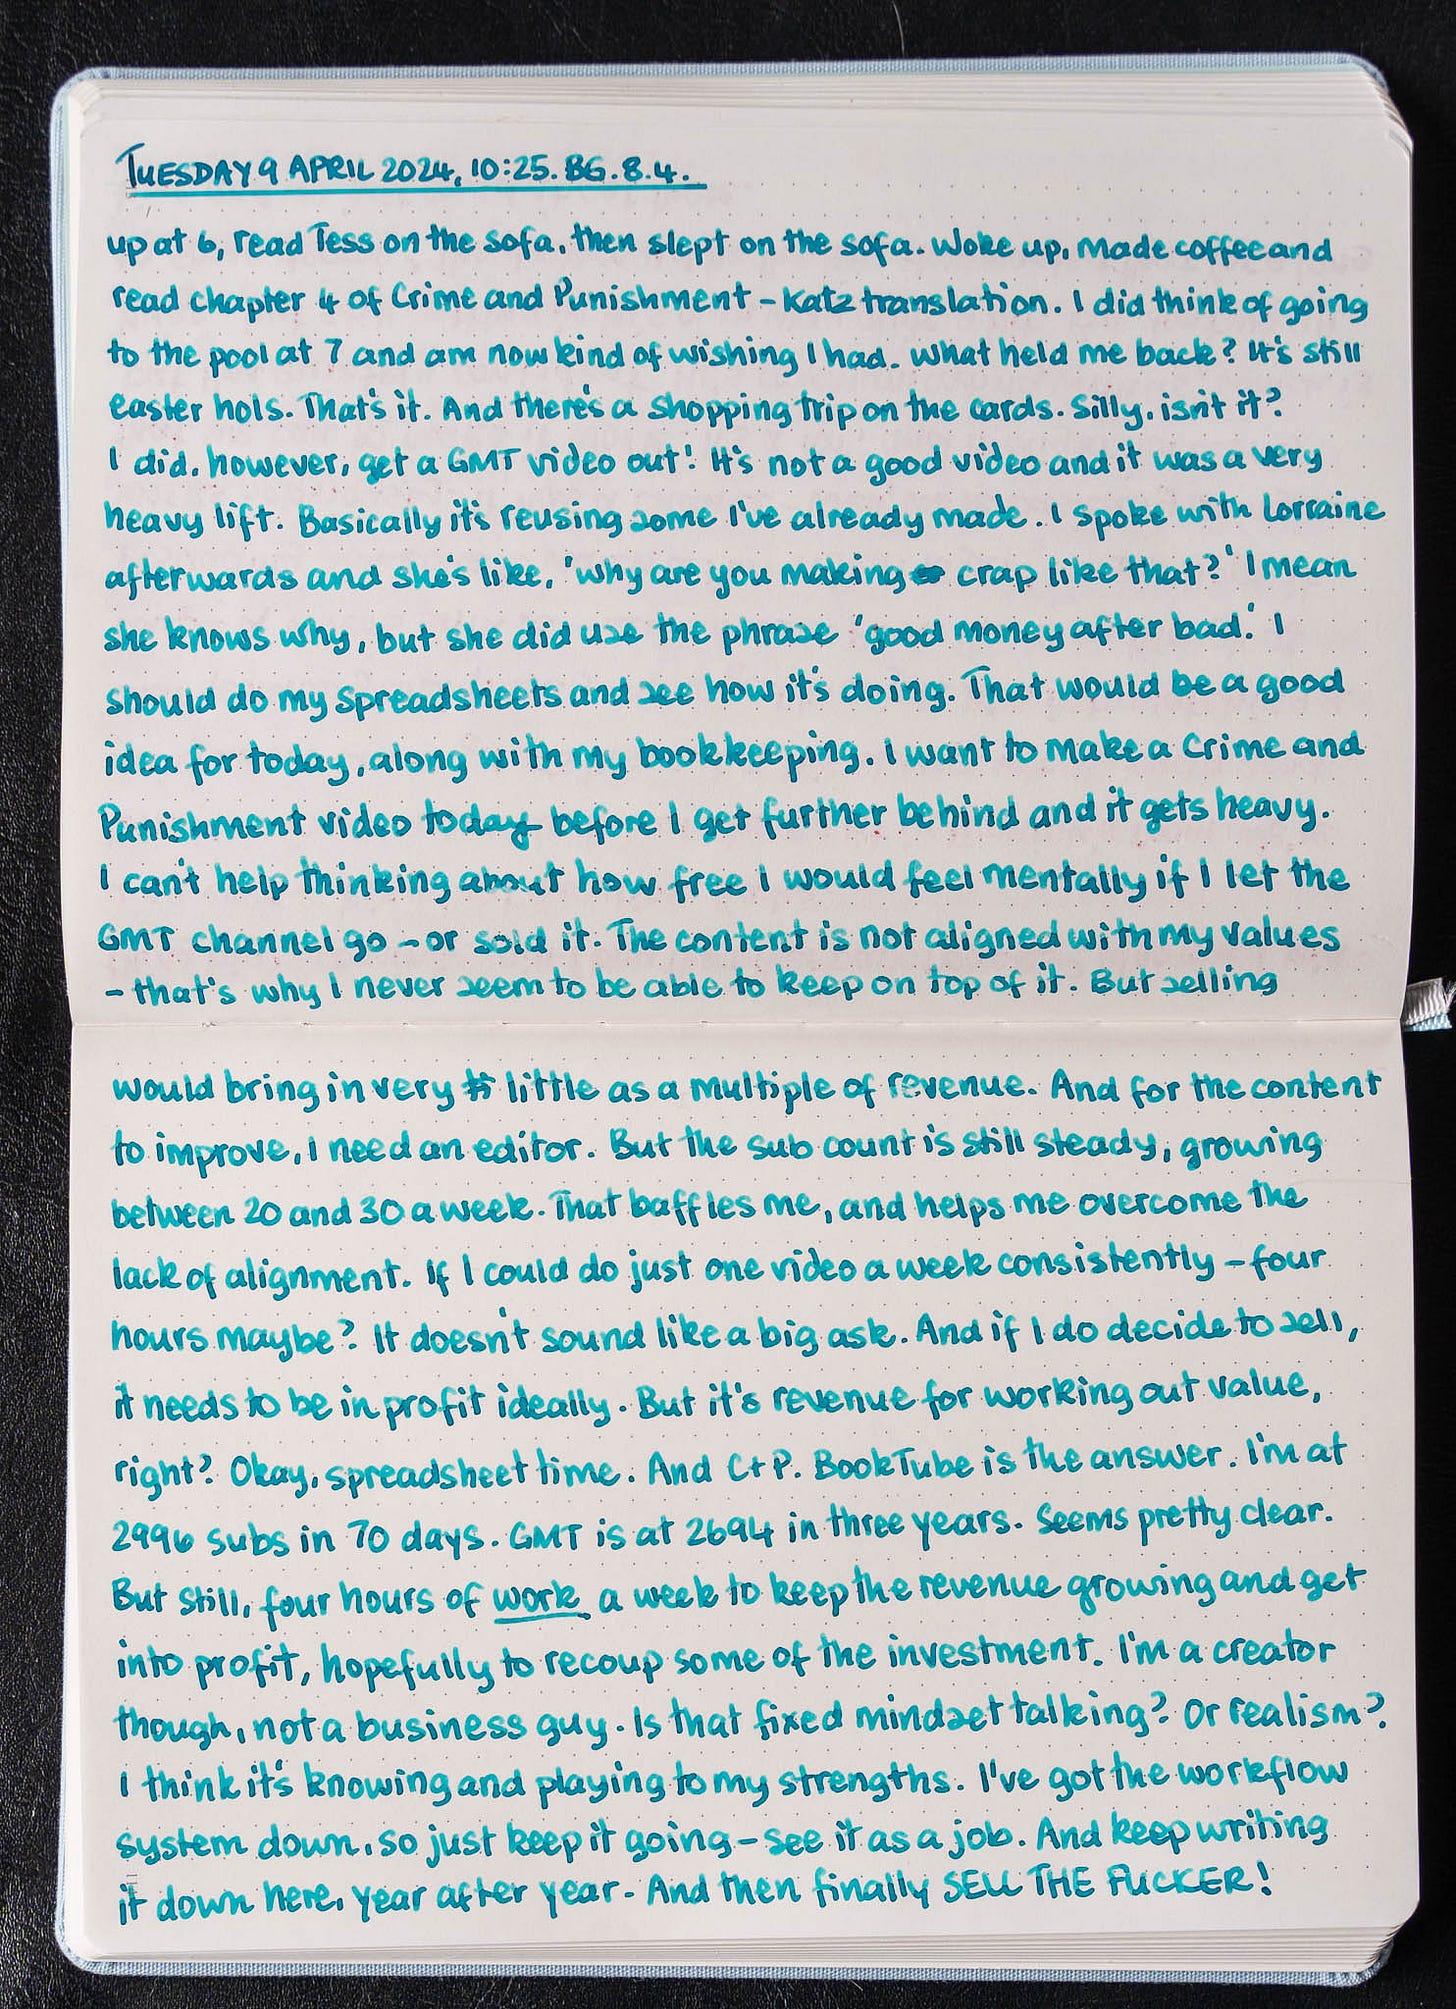 TUESDAY 9 APRIL 2024, 10:25. BG. 8.4.
up at 6, read Tess on the sofa, then slept on the sofa. Woke up, made coffee and
read chapter 4 of Crime and Punishment – Katz translation. I did think of going
to the pool at 7 and am now kind of wishing I had. What held me back? It's still
easter hols. That's it. And there's a shopping trip on the cards. Silly, isn't it?
I did, however, get a GMT video out! It's not a good video and it was a very
heavy lift. Basically it's reusing some I've already made. I spoke with Lorraine
afterwards and she's like, 'why are you making crap like that?' I mean
she knows why, but she did use the phrase 'good money after bad.' I
should do my spreadsheets and see how it's doing. That would be a good
idea for today, along with my bookkeeping. I want to make a Crime and
Punishment video today before I get further behind and it gets heavy.
I can't help thinking about how free I would feel mentally if I let the
GMT channel go – or sold it. The content is not aligned with my values
– that's why I never seem to be able to keep on top of it. But selling
would bring in very little as a multiple of revenue. And for the content
to improve, I need an editor. But the sub count is still steady, growing
between 20 and 30 a week. That baffles me, and helps me overcome the
lack of alignment. If I could do just one video a week consistently – four
hours maybe? It doesn't sound like a big ask. And if I do decide to sell,
it needs to be in profit ideally. But it's revenue for working out value,
right? Okay, spreadsheet time. And C+P. BookTube is the answer. I'm at
2996 subs in 70 days. GMT is at 2694 in three years. Seems pretty clear.
But still, four hours of work a week to keep the revenue growing and get
into profit, hopefully to recoup some of the investment. I'm a creator
though, not a business guy. Is that fixed mindset talking? Or realism?
I think it's knowing and playing to my strengths. I've got the workflow
system down, so just keep it going – see it as a job. And keep writing
it down here, year after year. And then finally SELL THE FUCKER!